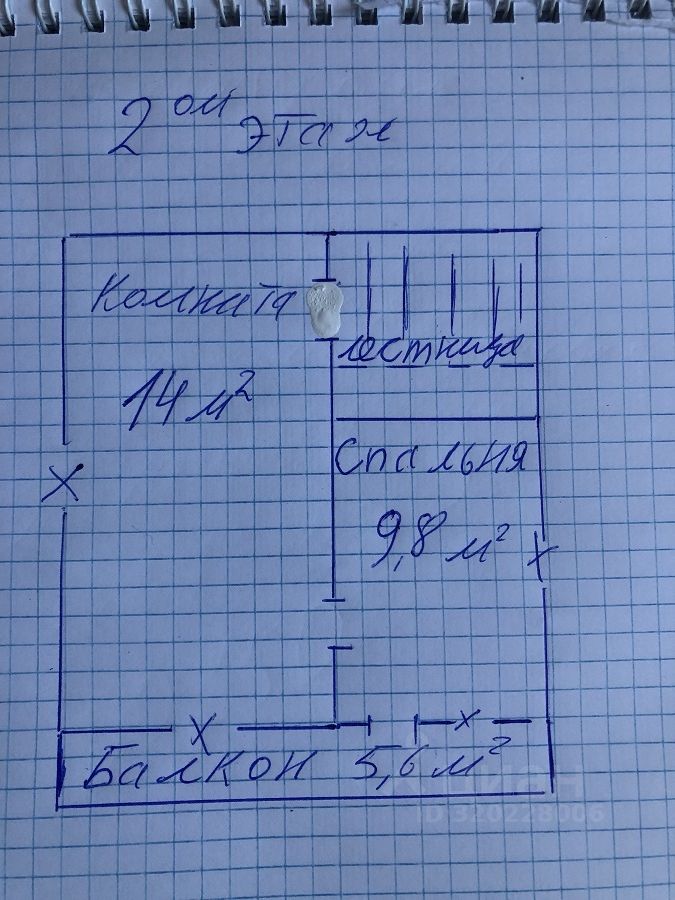 2ом этаж
Комната
лестница
14 м²
Спальня
9,8 м²
X
X
X
X
Балкон 5,6 м²
циан
ID 320228006